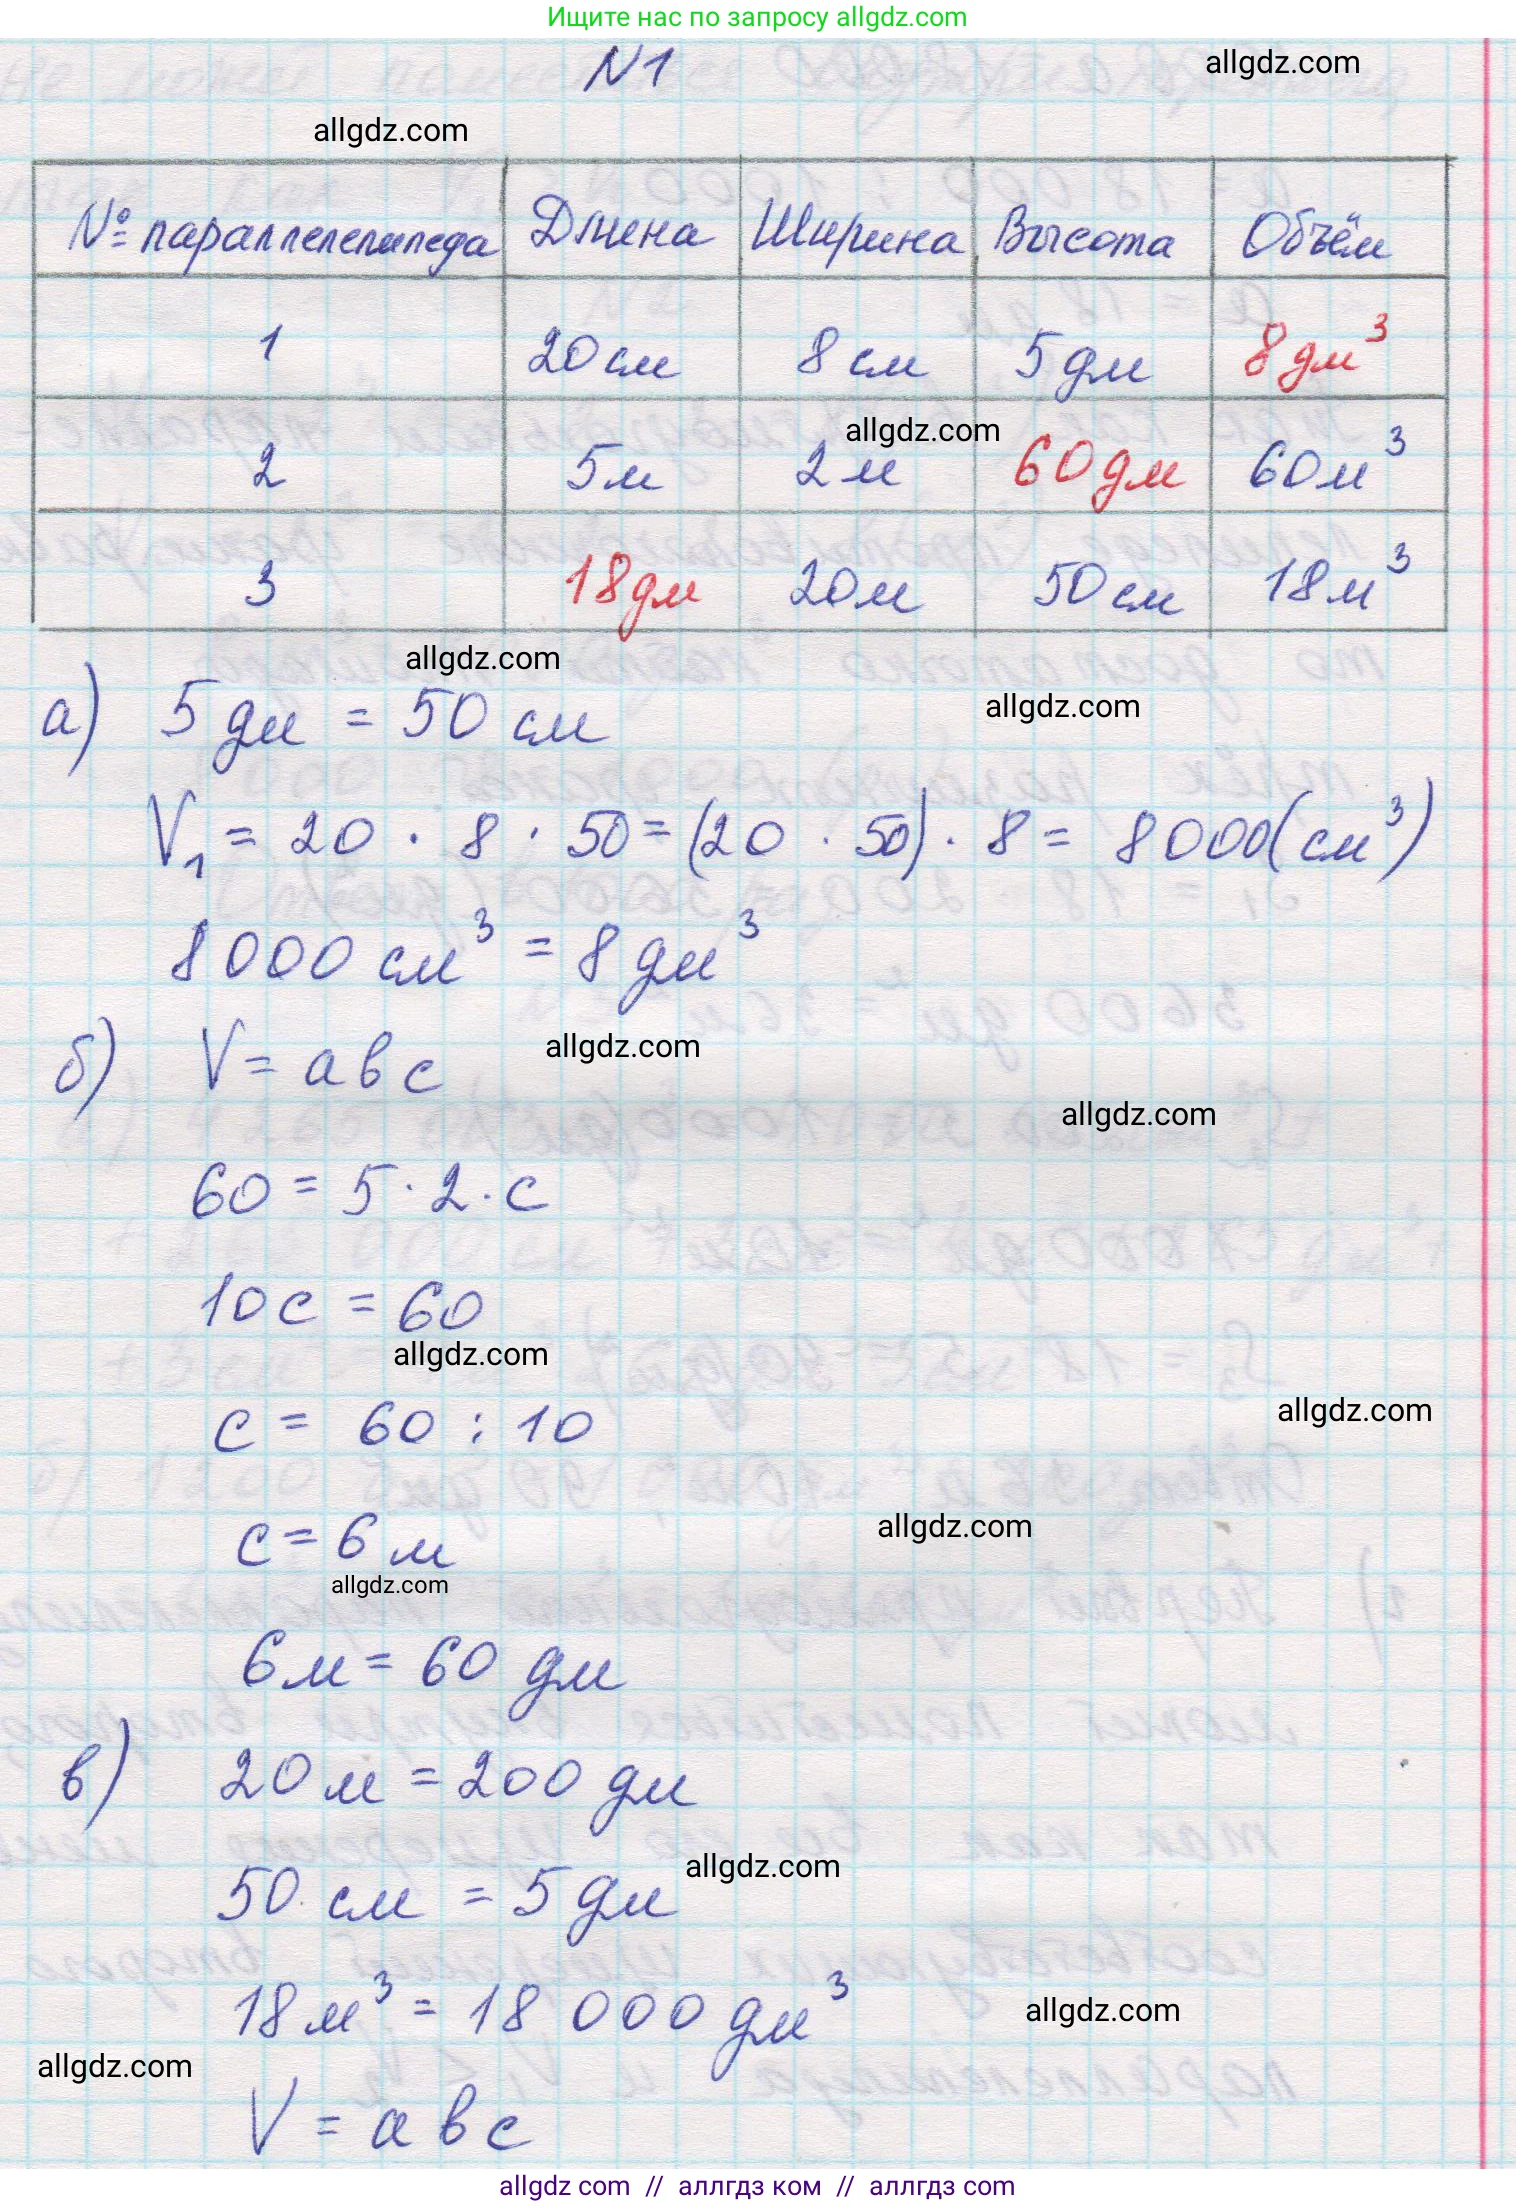 Ищите нас по запросу allgdz.com
N1
allgdz.com
allgdz.com
№ параллелепипеда Длина Ширина Высота Объём
1 20 см 8 см 5 дм 8 дм³
allgdz.com
2 5 м 2 м 60 дм 60 м³
3 18 дм 20 м 50 см 18 м³
allgdz.com
а) 5 дм = 50 см
allgdz.com
V₁ = 20 · 8 · 50 = (20 · 50) · 8 = 8000 (см³)
8000 см³ = 8 дм³
б) V = abc
allgdz.com
allgdz.com
60 = 5 · 2 · c
10c = 60
allgdz.com
c = 60 : 10
allgdz.com
c = 6 м
allgdz.com
allgdz.com
6 м = 60 дм
в) 20 м = 200 дм
allgdz.com
50 см = 5 дм
18 м³ = 18 000 дм³
allgdz.com
allgdz.com
V = abc
allgdz.com // аллгдз ком // аллгдз com